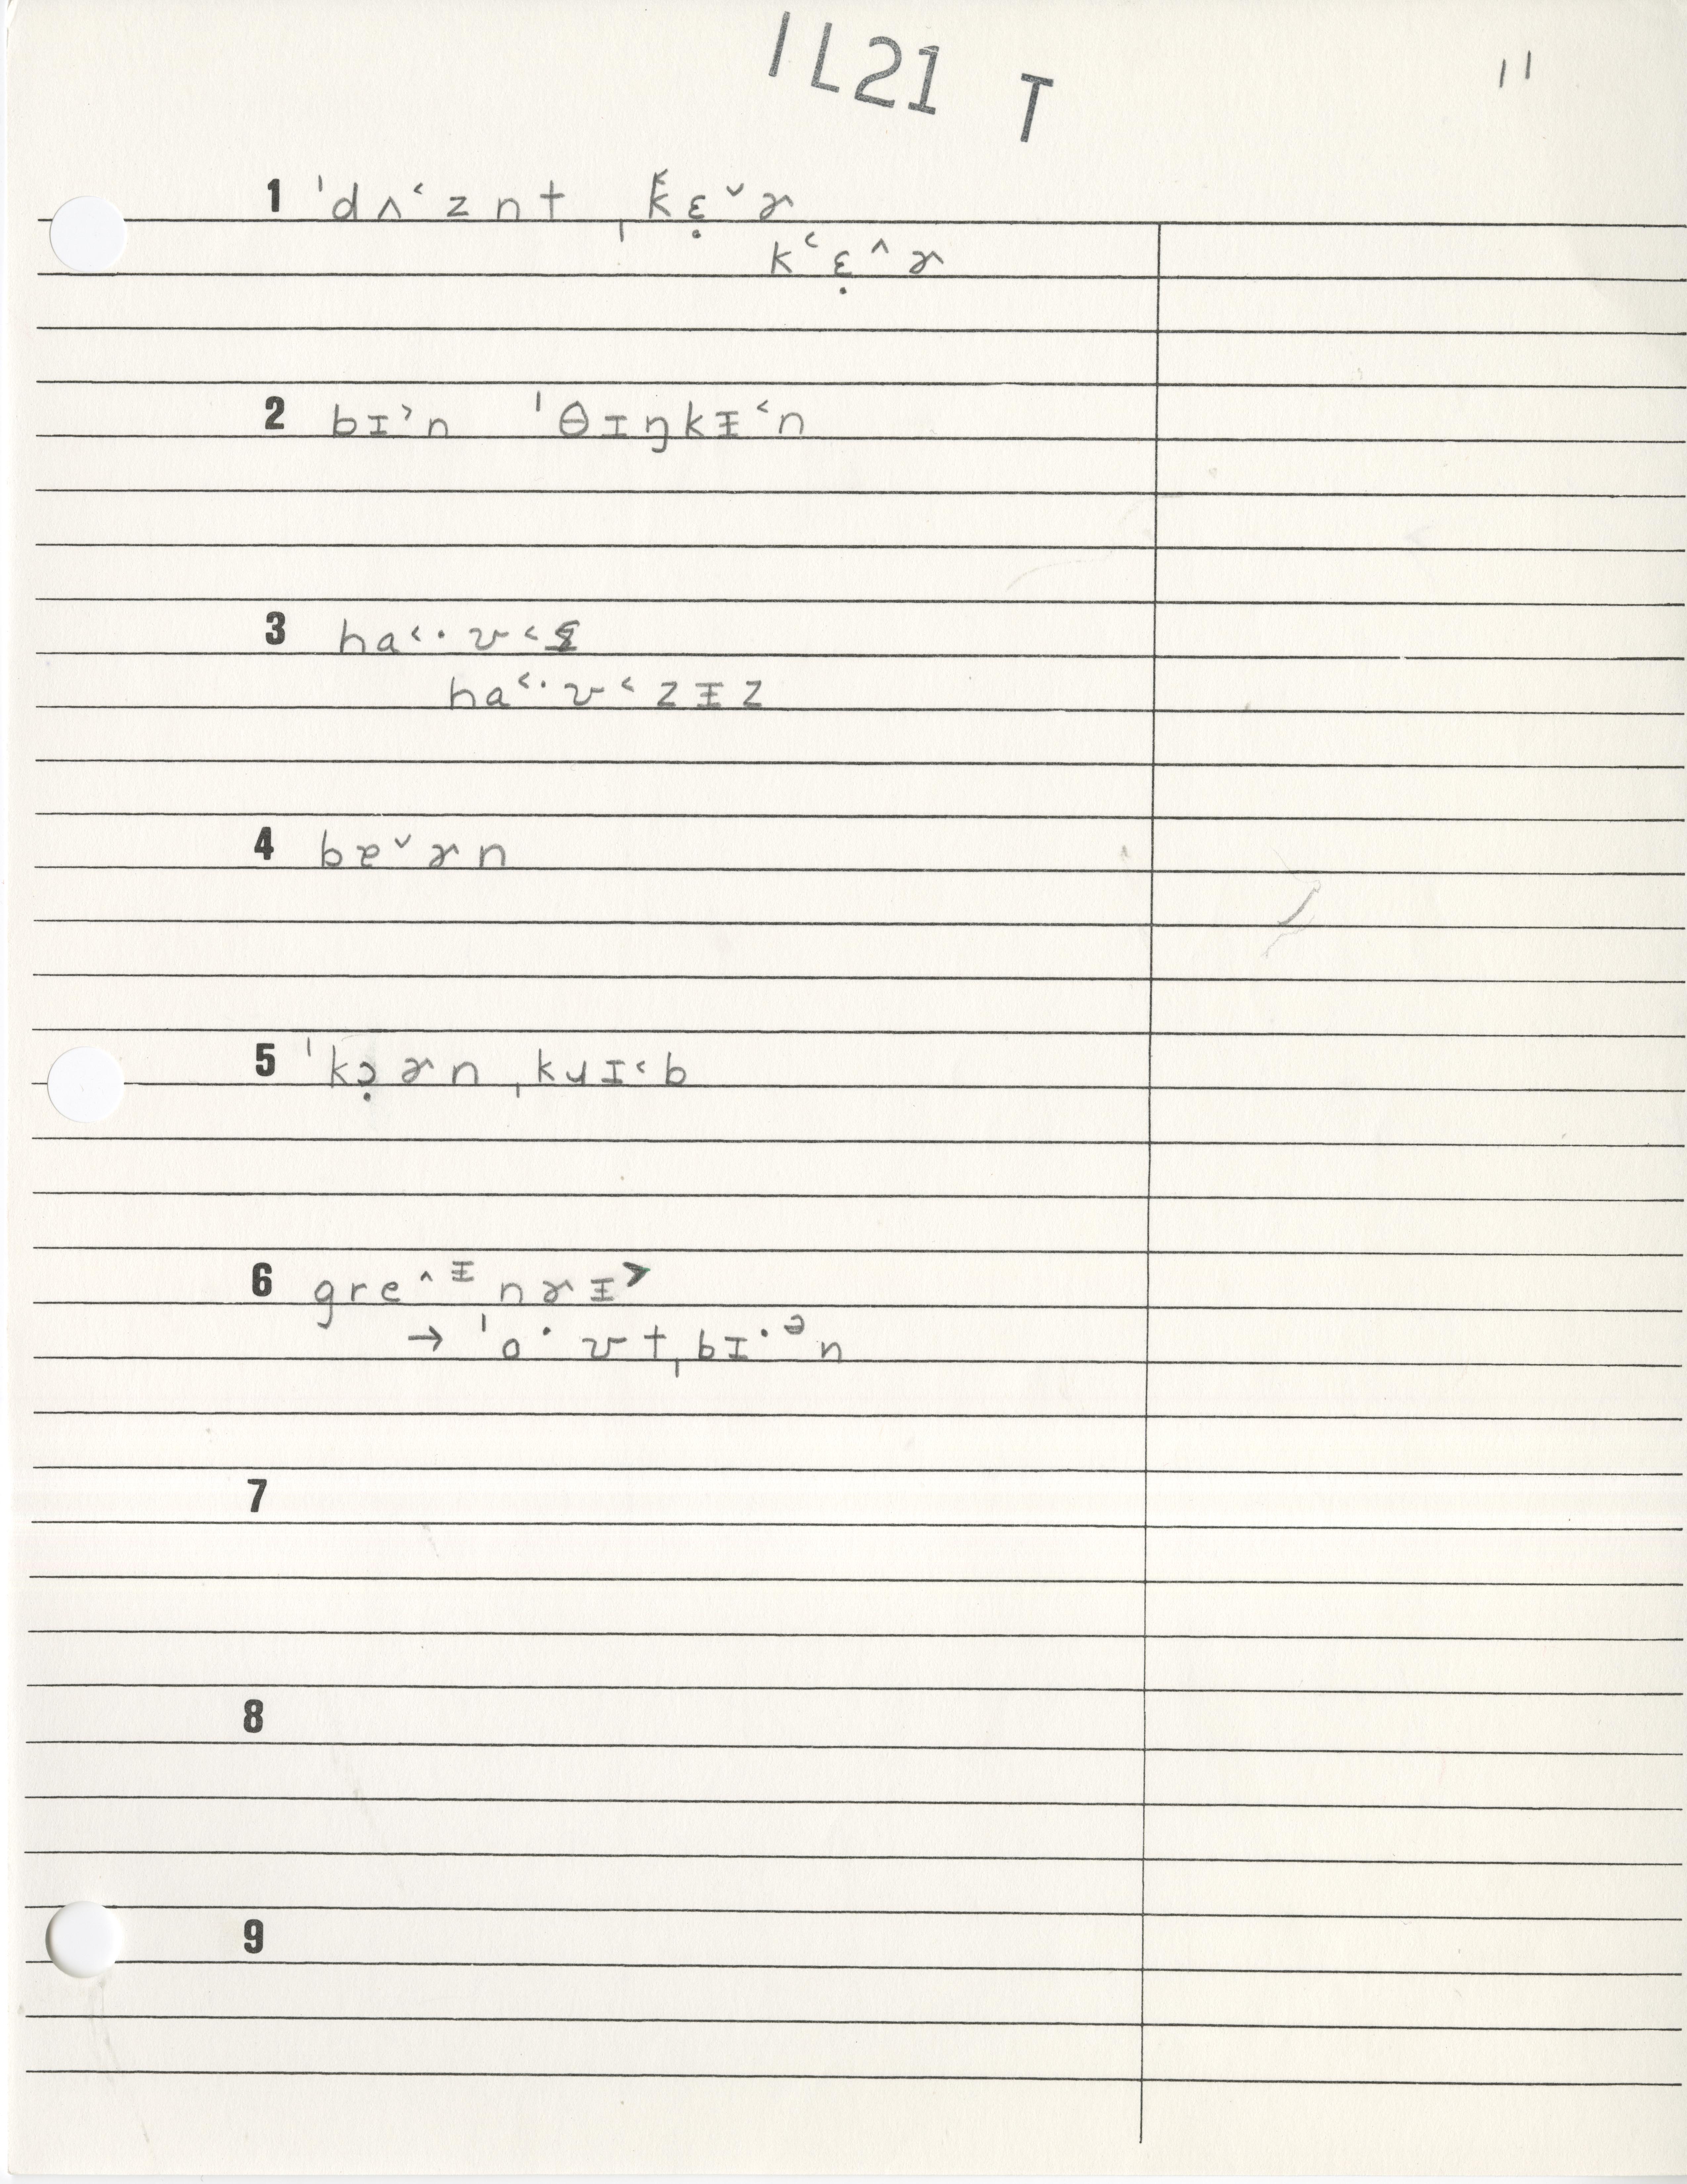 IL21 T
11
1 ˈdʌ˂znt ˌk˂ɛ̣˅ɚ
k˂ɛ̣˄ɚ
2 bɪ˃n ˈθɪŋkᵻ˂n
3 ha˂·ʊ˂s
ha˂·ʊ˂zᵻz
4 bɐ˅ɚn
5 ˈkɔ̣ɚn ˌkɹɪ˂b
6 gre˄ᵻnɚᵻ˃
→ ˈo·ʊtˌbɪ·ᵊn
7
8
9